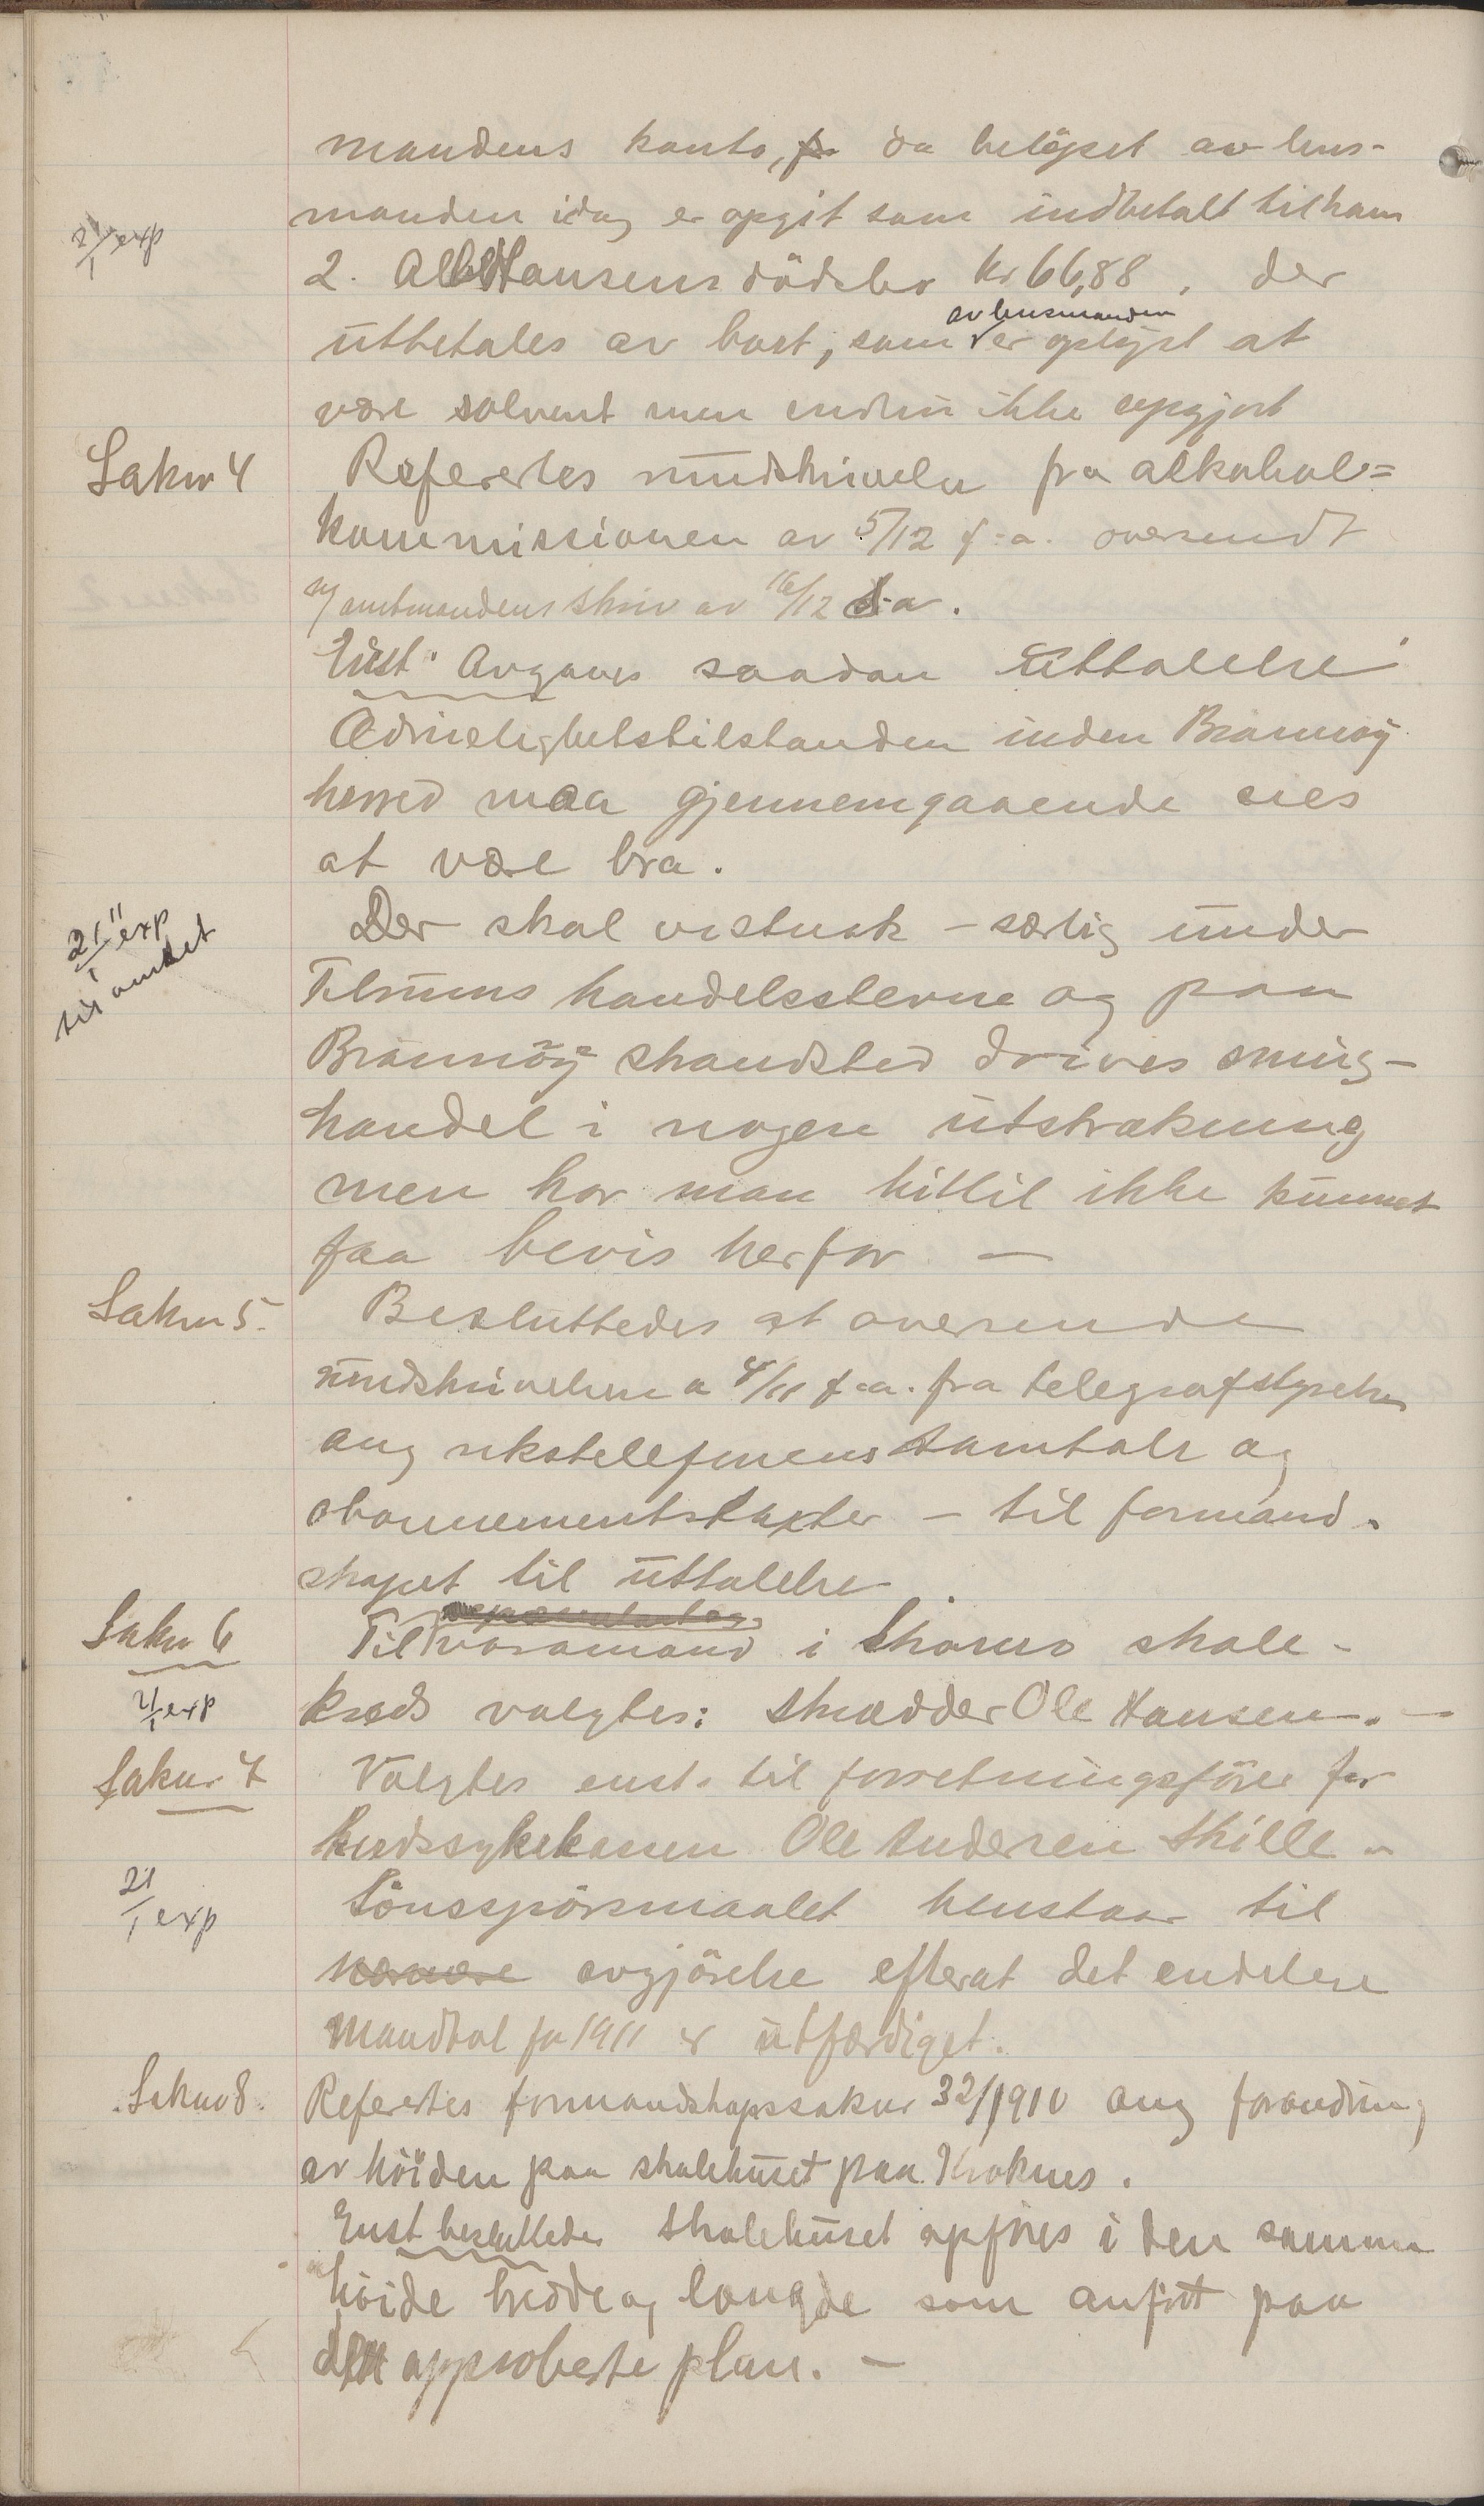 mandens konto, da beløpet av lens-
manden idag er opgit som indbetalt til ham
21/1 exp
2. Hansens dødsbo kr 66,88, der
av lensmanden
utbetales av boet, som er oplyst at
være solvent men endnu ikke opgjort
Saknr 4
Referertes rundskrivelse fra alkohol=
kommissionen av 5/12 f.a. oversendt
m/ amtmandens skriv av 16/12 s.a.
Enst. Avgaves saadan uttalelse
Ædruelighetstilstanden inden Brønnøy
herred maa gjennemgaaende sies
at være bra.
21/1 exp
til amtet
Der skal vistnok – særlig under
Tilrems handelsstevne og paa
Brønnøy strandsted drives smug-
handel i nogen utstrækning
men har man hittil ikke kunnet
faa bevis herfor —
Saknr 5.
Besluttedes at oversende
rundskrivelsen a 4/11 f.a. fra telegrafstyrelsen
ang rikstelefonens samtale og
abonnementstakster – til formand-
skapet til uttalelse.
Saknr 6
Til varamand i Skarmo skole-
21/1 exp
kreds valgtes: skrædder Ole Hansen. —
Saknr 7
Valgtes enst. til forretningsfører for
kredssykekassen Ole Andersen Skille –
21/1 exp
Lønsspørsmaalet henstaar til
nærmere avgjørelse efterat det endelige
mandtal for 1911 er utfærdiget.
Saknr 8.
Referertes formandskapssaknr 32/1910 ang forandring
av høiden paa skolehuset paa Kroknes.
Enst besluttedes skolehuset opføres i den samme
høide bredde og længde som anført paa
den approberte plan. —